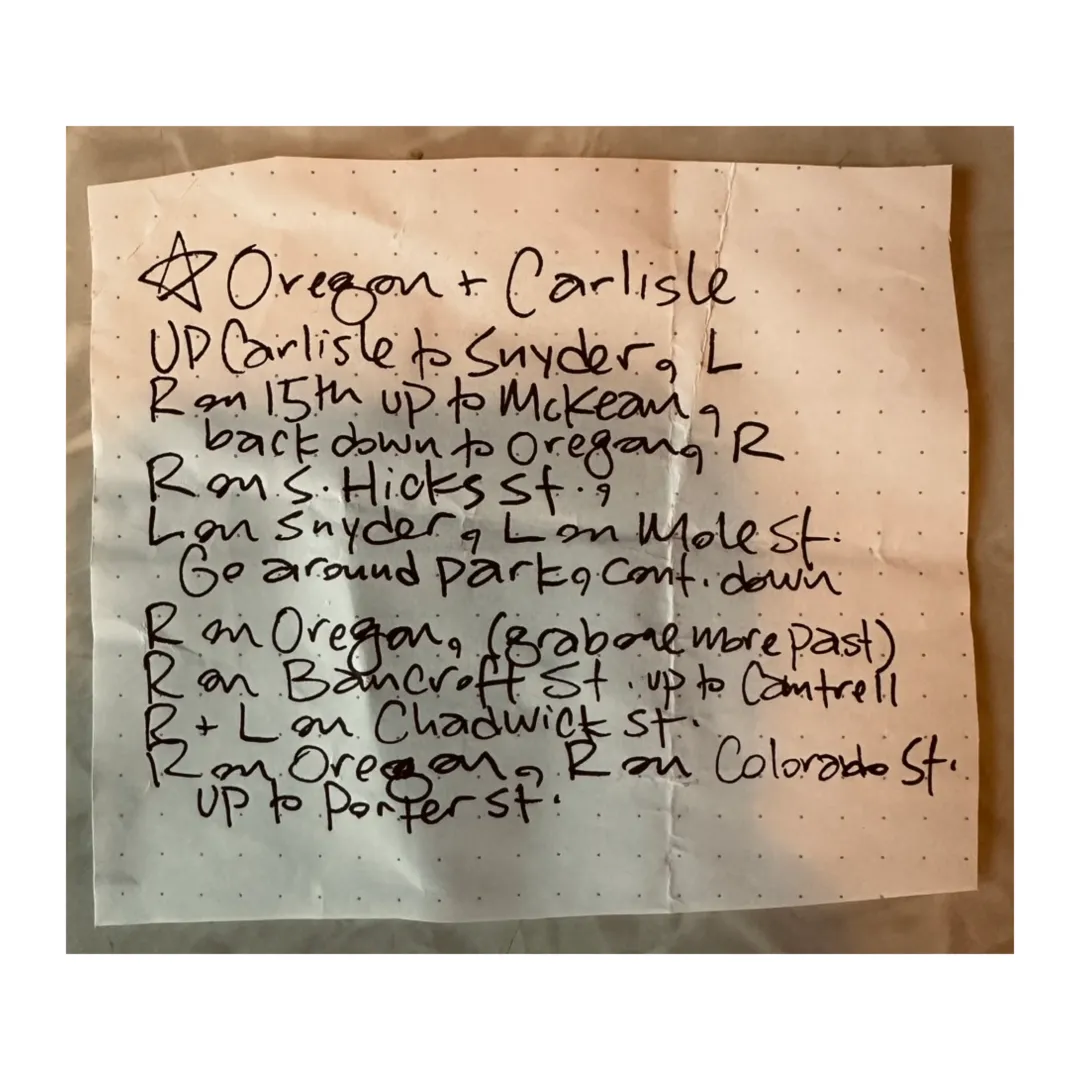 ☆ Oregon + Carlisle
UP Carlisle to Snyder, L
R on 15th up to McKean,
back down to Oregon, R
R on S. Hicks St.,
L on Snyder, L on Mole St.
Go around park, cont. down
R on Oregon, (grab one more past)
R on Bancroft St. up to Cantrell
R + L on Chadwick St.
R on Oregon, R on Colorado St.
up to Porter St.